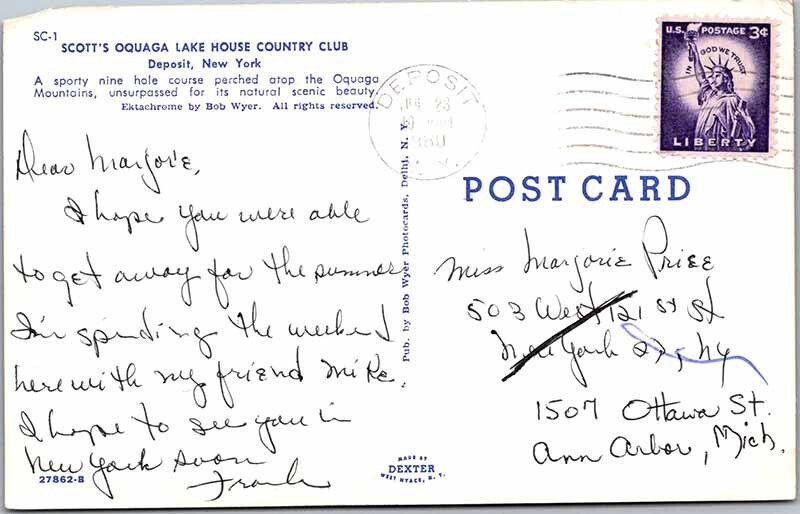 SC-1
SCOTT'S OQUAGA LAKE HOUSE COUNTRY CLUB
Deposit, New York
A sporty nine hole course perched atop the Oquaga
Mountains, unsurpassed for its natural scenic beauty.
Ektachrome by Bob Wyer. All rights reserved.
Dear Marjorie,
I hope you were able
to get away for the summer
I'm spending the weekend
here with my friend Mike.
I hope to see you in
New York soon
Frank
27862-B
Pub. by Bob Wyer Photocards, Delhi, N. Y.
MADE BY
DEXTER
WEST NYACK, N. Y.
DEPOSIT
23
U.S. POSTAGE 3¢
IN GOD WE TRUST
LIBERTY
POST CARD
Miss Marjorie Price
503 West 121 st St
New York 27, NY
1507 Ottawa St.
Ann Arbor, Mich.